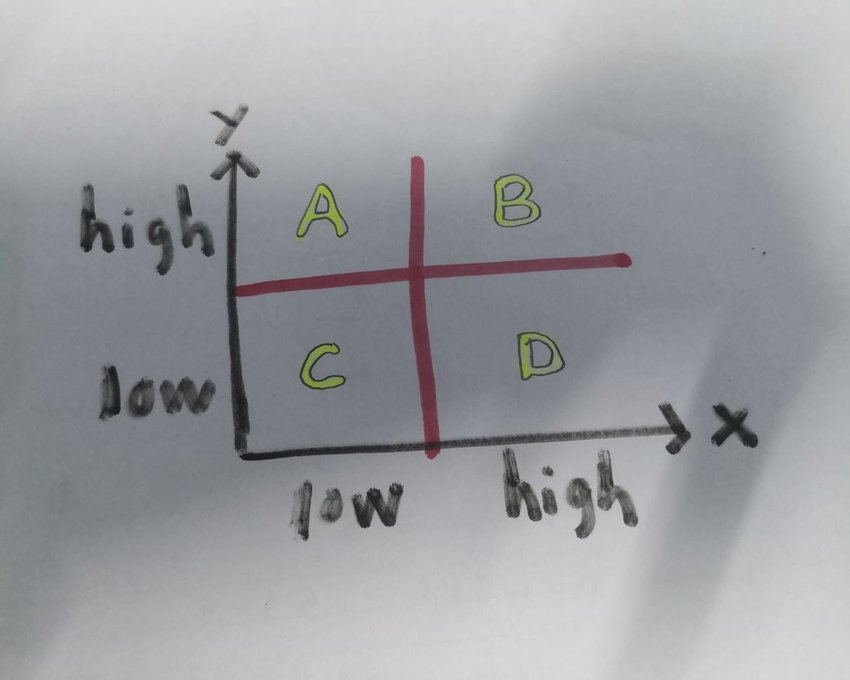 Y
high
A
B
low
C
D
X
low
high